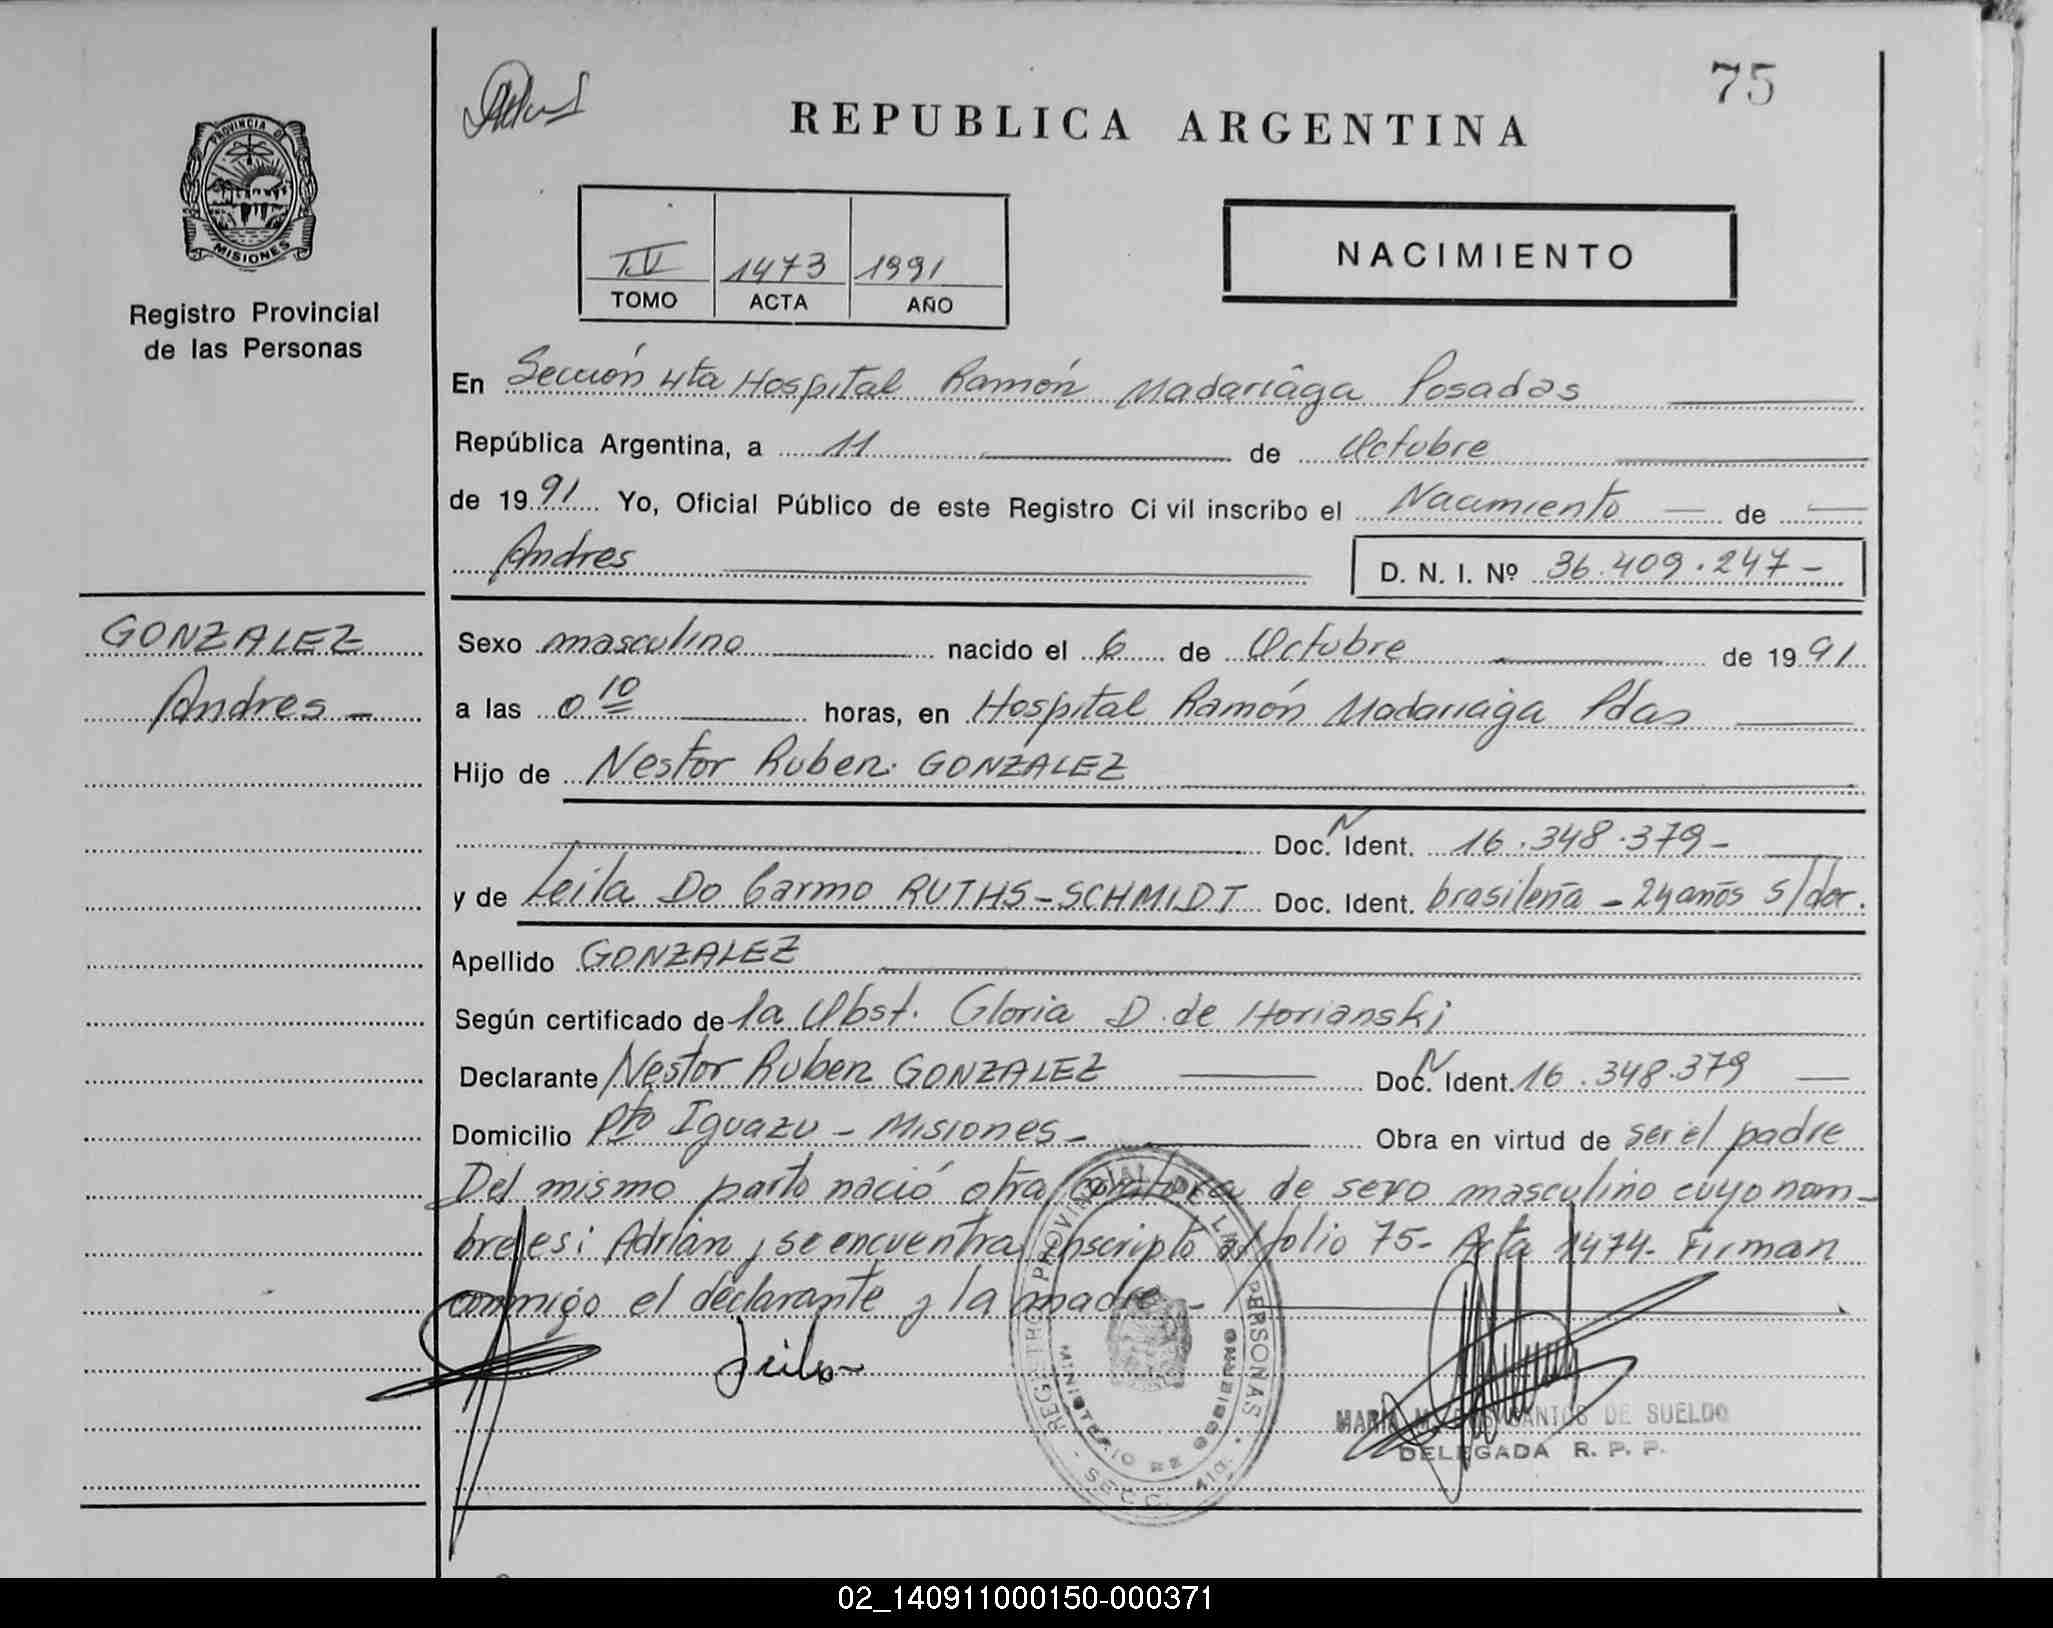 75
REPUBLICA ARGENTINA
PROVINCIA DE
MISIONES
Registro Provincial
de las Personas
T.V 1473 1991
TOMO ACTA AÑO
NACIMIENTO
En Sección 4ta Hospital Ramón Madariaga Posadas
República Argentina, a 11 de Octubre
de 1991 Yo, Oficial Público de este Registro Civil inscribo el Nacimiento de
Andres D. N. I. Nº 36.409.247-
GONZALEZ
Andres -
Sexo masculino nacido el 6 de Octubre de 1991
a las 0 10 horas, en Hospital Ramón Madariaga Pdas
Hijo de Nestor Ruben GONZALEZ
Doc. N Ident. 16.348.379-
y de Leila Do Carmo RUTHS-SCHMIDT Doc. Ident. brasileña - 24 años s/doc.
Apellido GONZALEZ
Según certificado de la Obst. Gloria D. de Horianski
Declarante Nestor Ruben GONZALEZ Doc. N Ident. 16.348.379
Domicilio Pto Iguazu - Misiones - Obra en virtud de ser el padre
Del mismo parto nació otra criatura de sexo masculino cuyo nom-
bre es: Adrian, se encuentra inscripto al folio 75- Acta 1474- Firman
conmigo el declarante y la madre -
Leila
REGISTRO PROVINCIAL DE LAS PERSONAS
MINISTERIO DE GOBIERNO
SECC. 4ta.
MARIA M. DOS SANTOS DE SUELDO
DELEGADA R. P. P.
02_140911000150-000371